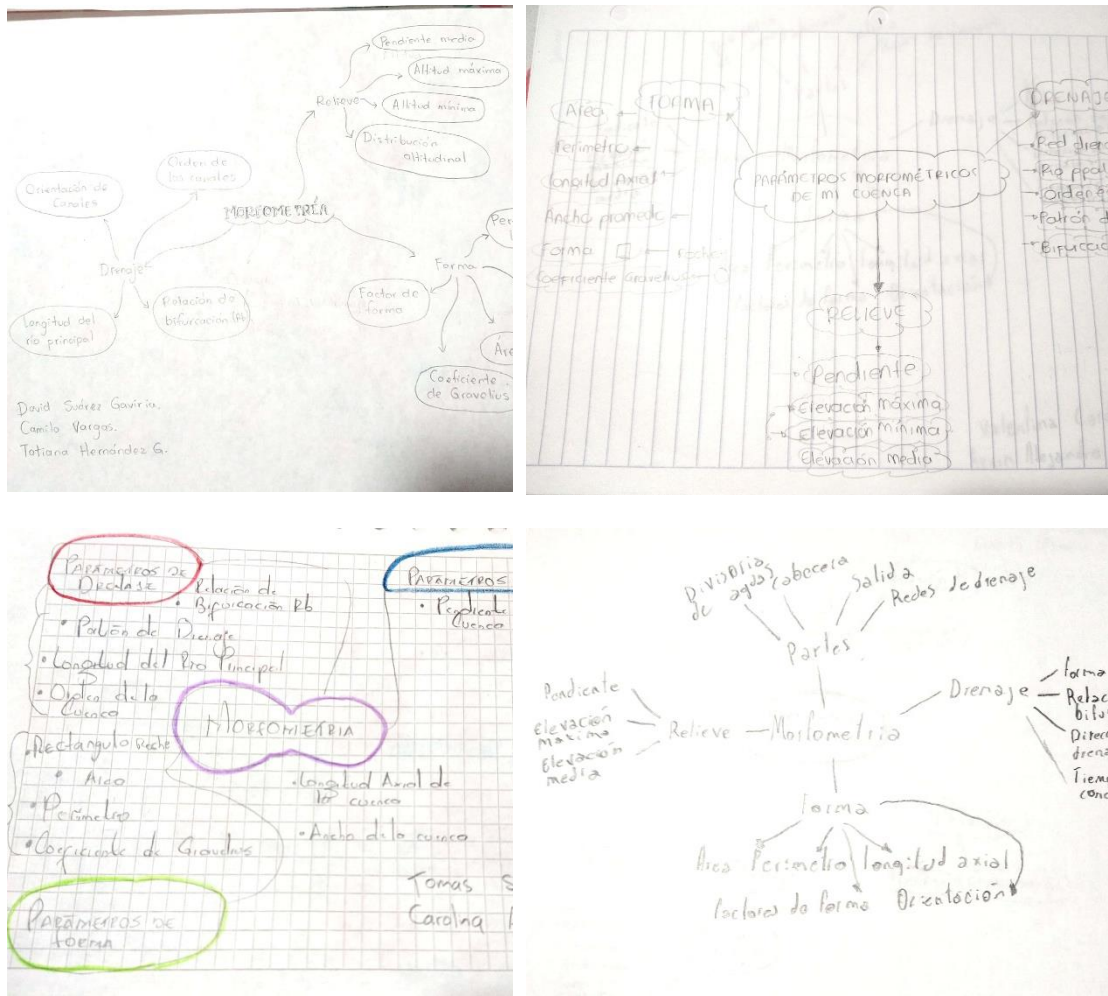 Pendiente media
Altitud máxima
Relieve
Altitud mínima
Distribución
altitudinal
Orden de
los canales
Orientación de
Canales
MORFOMETRÍA
Drenaje
Forma
Factor de
forma
Longitud del
río principal
Relación de
bifurcación
Coeficiente
de Gravelius
David Suárez Gaviria.
Camilo Vargas.
Tatiana Hernández G.
FORMA
Área
Perímetro
Longitud Axial
Ancho promedio
Forma
Coeficiente Gravelius
PARÁMETROS MORFOMÉTRICOS
DE MI CUENCA
DRENAJE
Red dren
Rio ppal
Orden
Patrón d
Bifurcació
RELIEVE
Pendiente
Elevación máxima
Elevación mínima
Elevación media
PARÁMETROS DE
DRENAJE
Relación de
Bifurcación Rb
Patrón de Drenaje
Longitud del Rio Principal
Orden de la
Cuenca
MORFOMETRIA
Rectangulo
Area
Perímetro
Coeficiente de Gravelius
PARÁMETROS DE
FORMA
PARÁMETROS
Pendiente
Cuenca
Longitud Axial de
la cuenca
Ancho de la cuenca
Tomas S
Carolina
Divisorias
de aguas
cabecera
Salida
Redes de drenaje
Partes
Pendiente
Elevación
maxima
Elevación
media
Relieve
Morfometria
Drenaje
forma
Relac
bifu
Direc
drena
Tiem
conc
forma
Area
Perimetro
longitud axial
factores de forma
Orientación